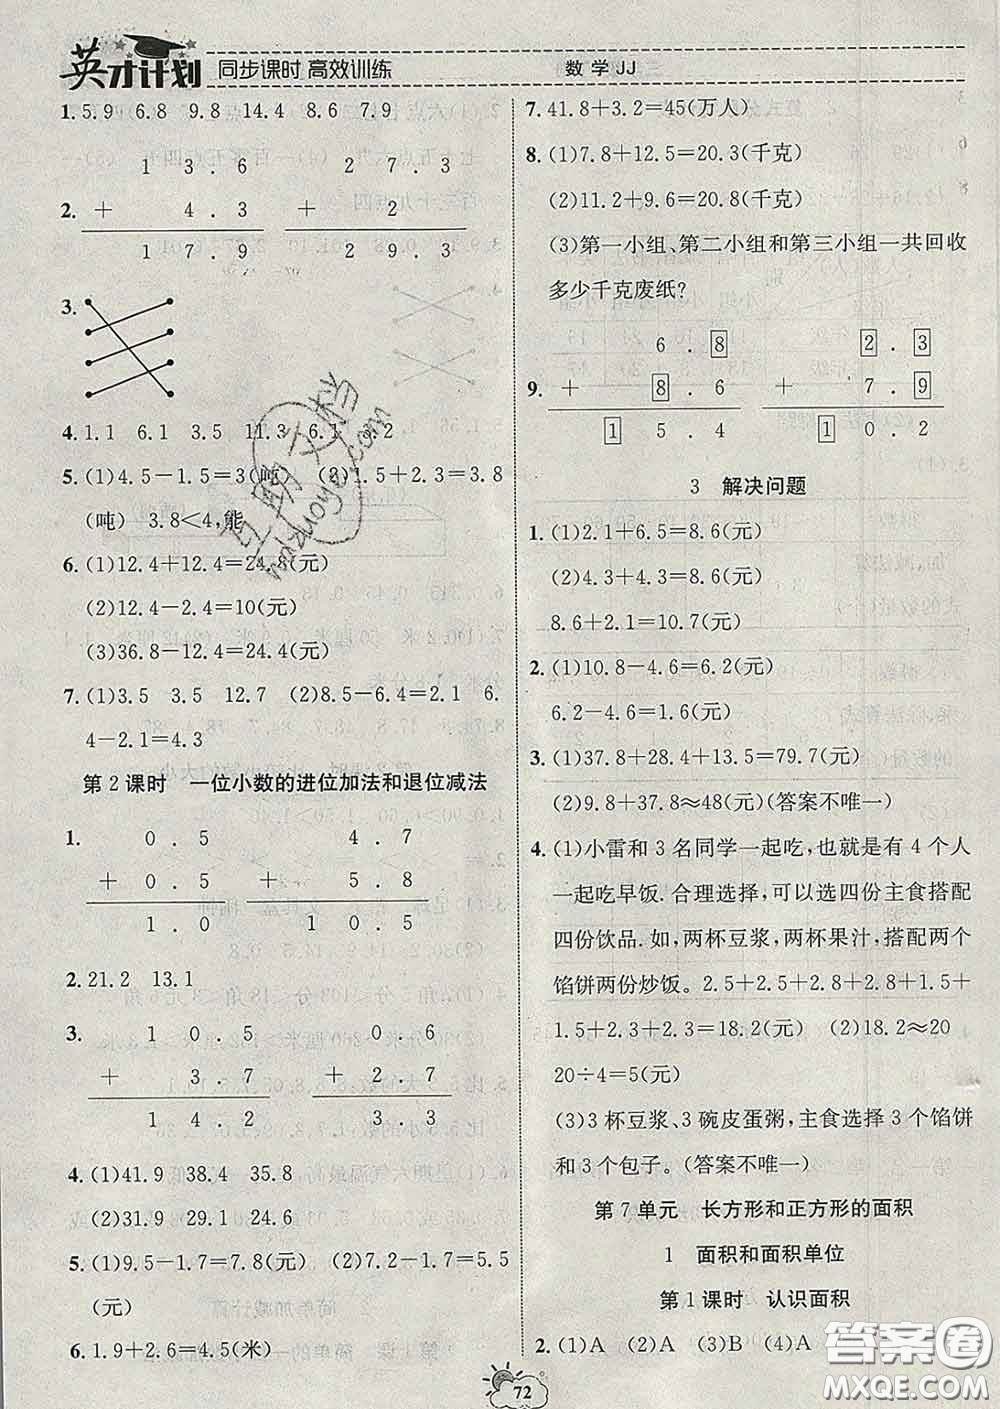 英才计划 同步课时 高效训练 数学JJ
1. 5.9 6.8 9.8 14.4 8.6 7.9
1 3 . 6 2 7 . 3
2. + 4 . 3 + 2
1 7 . 9 2 9 . 3
3.
4. 1.1 6.1 3.5 11.3 6.1 3.2
5. (1)4.5-1.5=3(吨) (2)1.5+2.3=3.8
(吨) 3.8<4,能
6. (1)12.4+12.4=24.8(元)
(2)12.4-2.4=10(元)
(3)36.8-12.4=24.4(元)
7. (1)3.5 3.5 12.7 (2)8.5-6.4=2.1 6.
4-2.1=4.3
第2课时 一位小数的进位加法和退位减法
1. 0 . 5 4 . 7
+ 0 . 5 + 5 . 8
1 . 0 1 0 . 5
2. 21.2 13.1
3. 1 0 . 5 0 . 6
+ 3 . 7 + 2 . 7
1 4 . 2 3 . 3
4. (1)41.9 38.4 35.8
(2)31.9 29.1 24.6
5. (1)9.5-1.7=7.8(元) (2)7.2-1.7=5.5
(元)
6. 1.9+2.6=4.5(米)
7. 41.8+3.2=45(万人)
8. (1)7.8+12.5=20.3(千克)
(2)11.2+9.6=20.8(千克)
(3)第一小组、第二小组和第三小组一共回收
多少千克废纸?
6 . 8 2 . 3
9. + 8 . 6 + 7 . 9
1 5 . 4 1 0 . 2
3 解决问题
1. (1)2.1+6.5=8.6(元)
(2)4.3+4.3=8.6(元)
8.6+2.1=10.7(元)
2. (1)10.8-4.6=6.2(元)
6.2-4.6=1.6(元)
3. (1)37.8+28.4+13.5=79.7(元)
(2)9.8+37.8≈48(元)(答案不唯一)
4. (1)小雷和3名同学一起吃,也就是有4个人
一起吃早饭. 合理选择,可以选四份主食搭配
四份饮品. 如,两杯豆浆,两杯果汁,两个
馅饼两份炒饭。2.5+2.5+2.8+2.8+1.5+
1.5+2.3+2.3=18.2(元) (2)18.2≈20
20÷4=5(元)
(3)3杯豆浆、3碗皮蛋粥,主食选择3个馅饼
和3个包子。(答案不唯一)
第7单元 长方形和正方形的面积
1 面积和面积单位
第1课时 认识面积
2. (1)A (2)A (3)B (4)A
72
答案圈
MXQE.COM